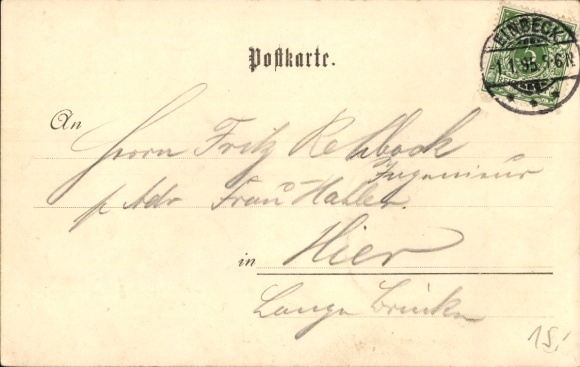 EINBECK
1.1.95.5-6N
Postkarte.
An
Herrn Fritz Rehbock
Ingenieur
p. Adr Frau Hahler.
in Hier
Lange Brücke
15,-